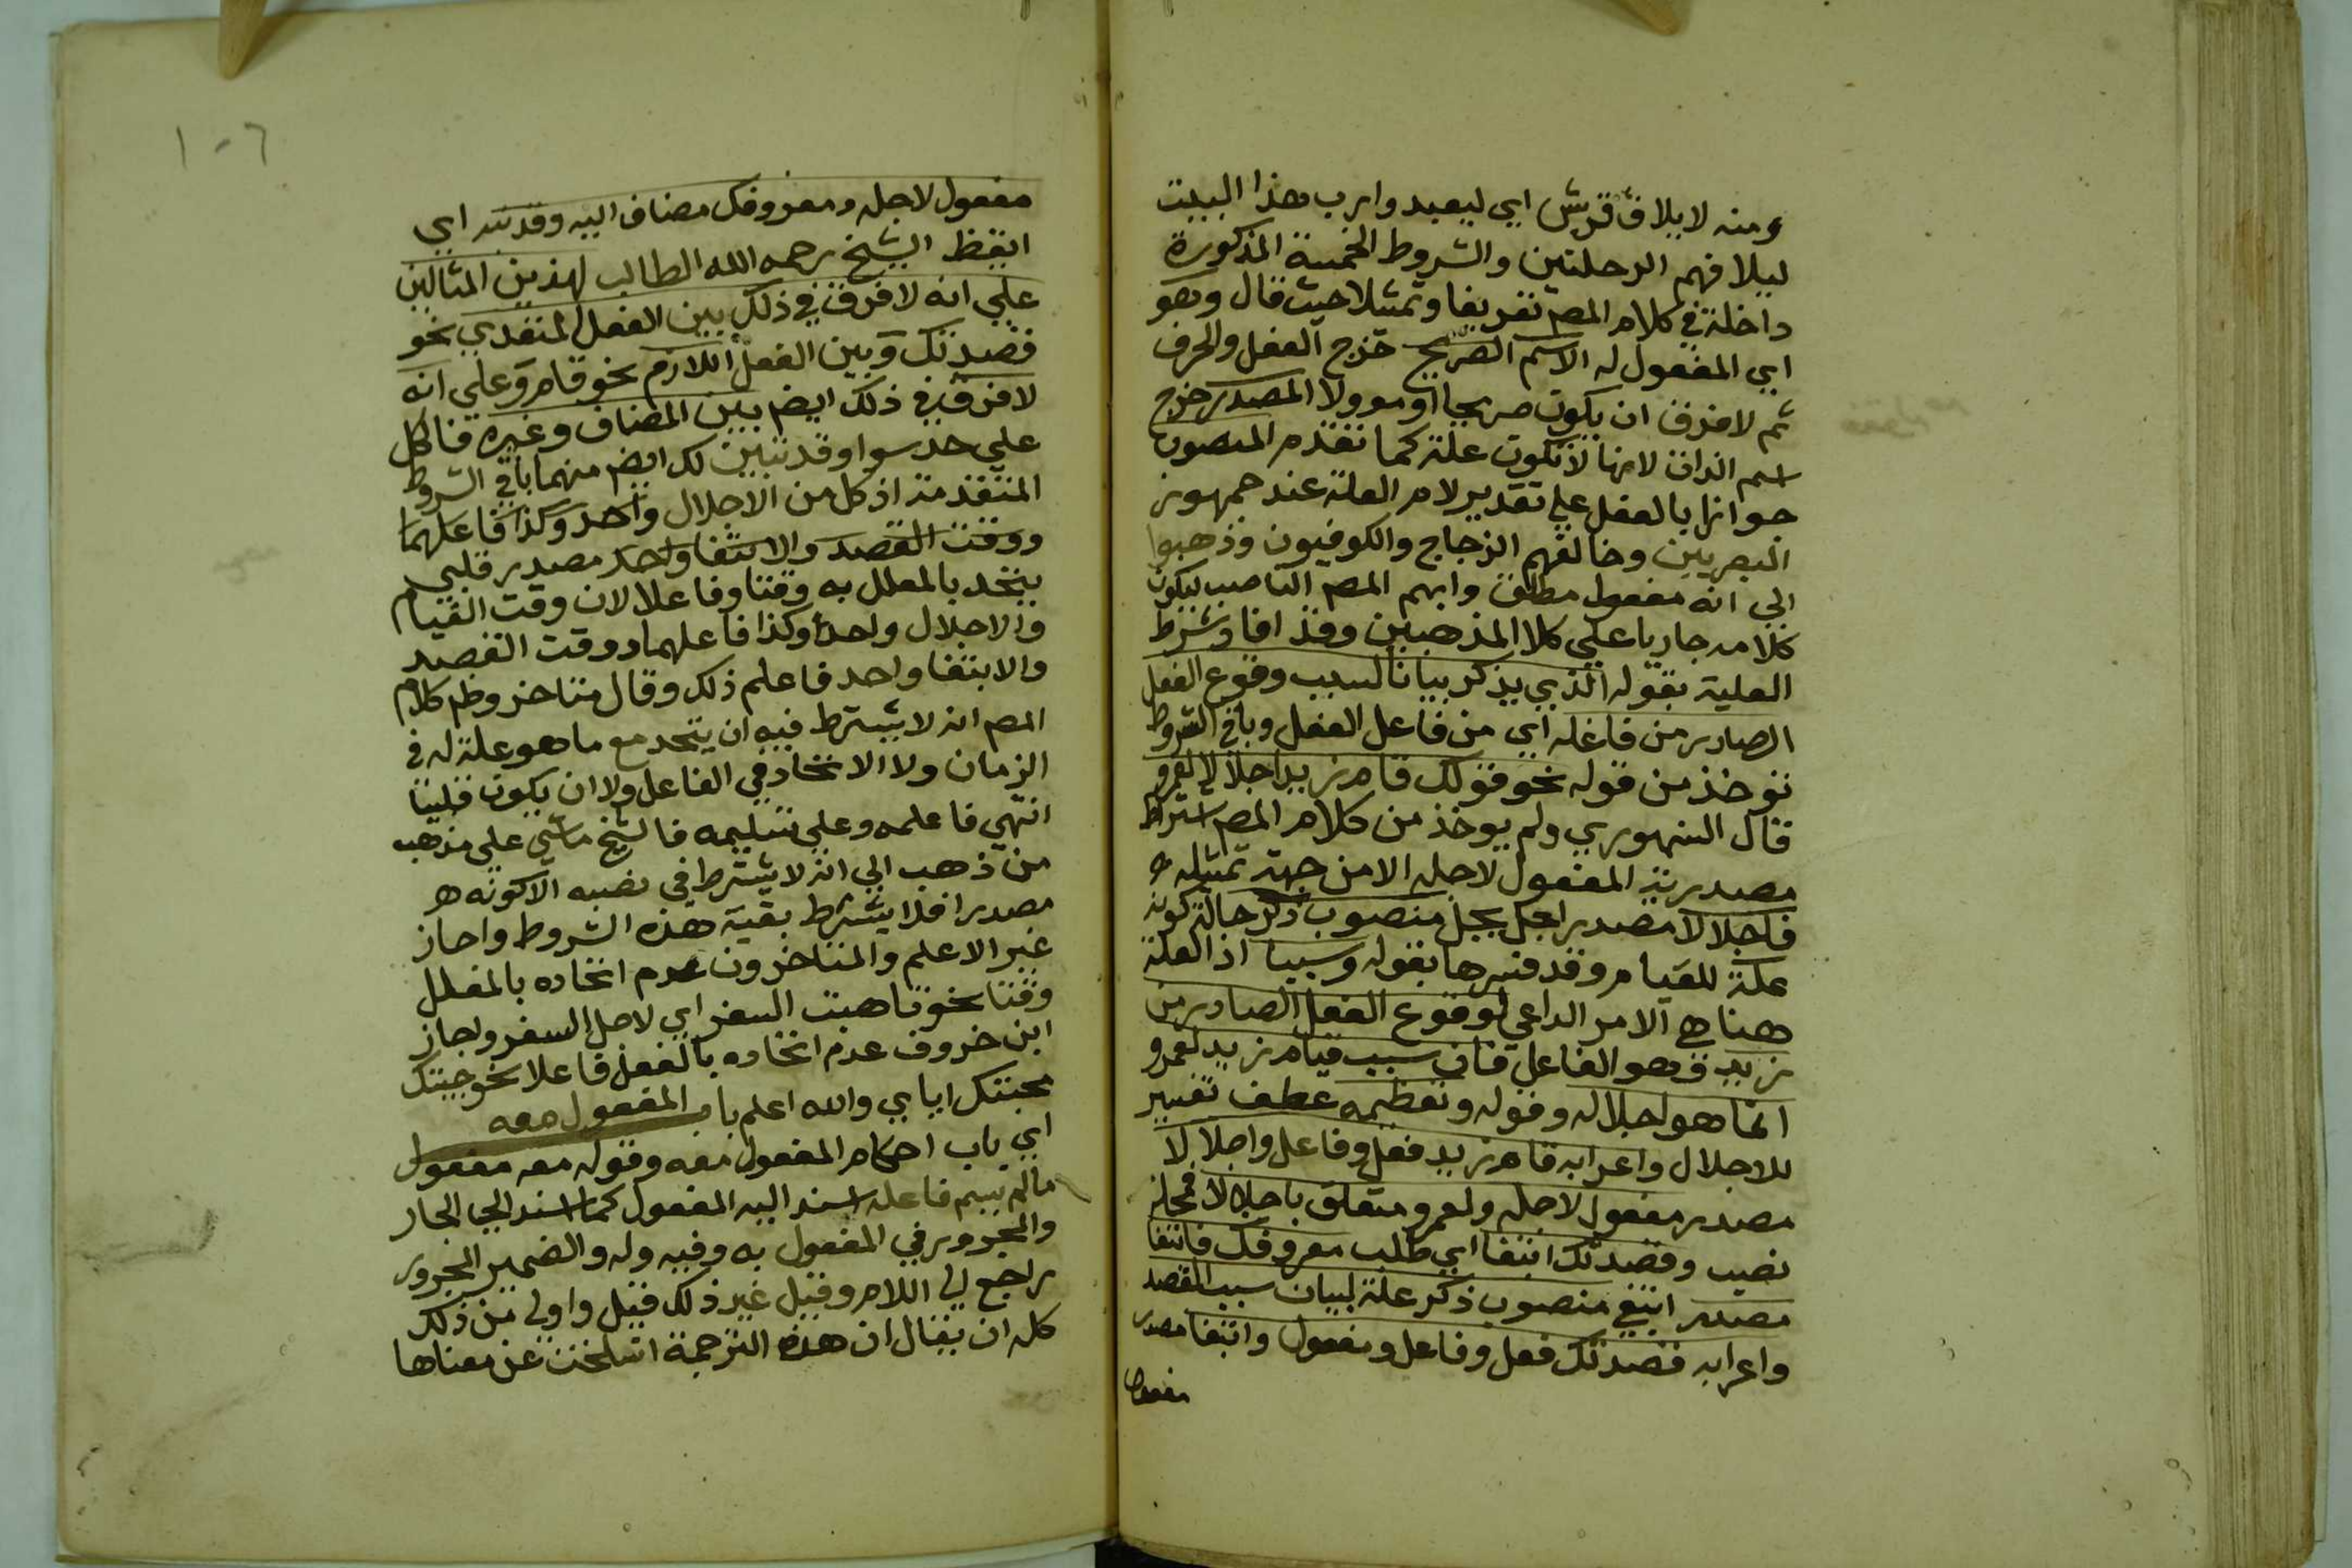 ومنه لايلاف قريش اي ليعبدوا رب هذا البيت
ليلافهم الرحلتين والشروط الخمسة المذكورة
داخلة في كلام المصم تعريفا وتمثيلا حيث قال وهو
اي المفعول له الاسم الصريح خرج الفعل والحرف
ثم لا فرق ان يكون صريحا او موولا المصدر خرج
اسم الذات لانها لا تكون علة كما تقدم المنصوب
جوازا بالفعل علي تقدير لام العلة عند جمهور
البصريين وخالفهم الزجاج والكوفيون وذهبوا
الي انه مفعول مطلق وابهم المصم الناصب ليكون
كلامه جاريا علي كلا المذهبين وقد افاد شرط
العلية بقوله الذي يذكر بيانا لسبب وقوع الفعل
الصادر من فاعله اي من فاعل الفعل وباقي الشروط
توخذ من قوله نحو قولك قام زيد اجلالا لعمرو
قال السنهوري ولم يوخذ من كلام المصم اشتراط
مصدرية المفعول لاجله الا من جهة تمثيله
فاجلالا مصدر اجل يجل منصوب ذكر حالة كونه
علة للقيام وقد فسرها بقوله وسببا اذ العلة
هنا هي الامر الداعي لوقوع الفعل الصادر من
زيد وهو الفاعل فان سبب قيام زيد لعمرو
انما هو اجلاله وقوله وتعظيمه عطف تفسير
للاجلال واعرابه قام زيد فعل وفاعل واجلالا
مصدر مفعول لاجله ولعمرو متعلق باجلالا فمحله
نصب وقصدتك ابتغا اي طلب معروفك فابتغا
مصدر ابتغي منصوب ذكر علة لبيان سبب القصد
واعرابه قصدتك فعل وفاعل ومفعول وابتغا مصدر
مفعول
١٠٦
مفعول لاجله ومعروفك مضاف اليه وقد نبه اي
ايقظ الشيخ رحمه الله الطالب لهذين المثالين
علي انه لا فرق في ذلك بين الفعل المتعدي نحو
قصدتك وبين الفعل اللازم نحو قام وعلي انه
لا فرق في ذلك ايضم بين المضاف وغيره فنا كل
علي حد سوا وقد تبين لك ايضم منهما باقي الشروط
المتقدمة اذ كل من الاجلال واحد وكذا فاعلهما
ووقت القصد والابتغا واحد مصدر قلبي
يتحد بالمعلل به وقتا وفاعلا لان وقت القيام
والاجلال واحد وكذا فاعلهما ووقت القصد
والابتغا واحد فاعلم ذلك وقال متاخر وظم كلام
المصم انه لا يشترط فيه ان يتحد مع ما هو علة له في
الزمان ولا الاتحاد في الفاعل ولا ان يكون قلبيا
انتهي فاعلمه وعلي تسليمه فالشيخ ماشي علي مذهب
من ذهب الي انه لا يشترط في نصبه الا كونه
مصدرا فلا يشترط بقية هذه الشروط واجاز
غير الاعلم والمتاخرون عدم اتحاده بالمعلل
وقتا نحو تاهبت السفر اي لاجل السفر واجاز
ابن خروف عدم اتحاده بالفعل فاعلا نحو جيتك
محبتك اياي والله اعلم باب المفعول معه
اي باب احكام المفعول معه وقوله معه مفعول
مالم يسم فاعله اسند اليه المفعول كما اسند الي الجار
والمجرور في المفعول به وفيه وله والضمير المجرور
راجع لي اللام وقيل غير ذلك قيل واولي من ذلك
كله ان يقال ان هذه الترجمة انسلخت عن معناها